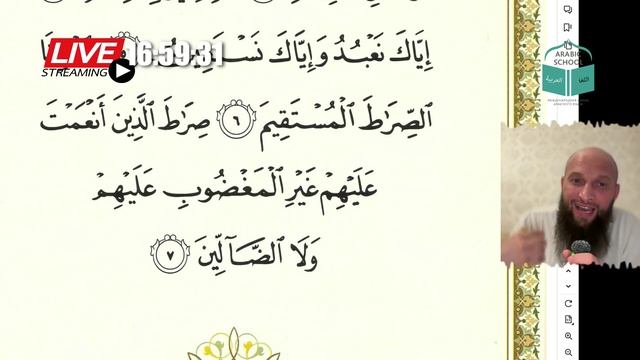 إِيَّاكَ نَعْبُدُ وَإِيَّاكَ
ٱلصِّرَٰطَ ٱلْمُسْتَقِيمَ ٦ صِرَٰطَ ٱلَّذِينَ أَنْعَمْتَ
عَلَيْهِمْ غَيْرِ ٱلْمَغْضُوبِ عَلَيْهِمْ
وَلَا ٱلضَّآلِّينَ ٧
LIVE
STREAMING
16:59:31
ARABIC
SCHOOL